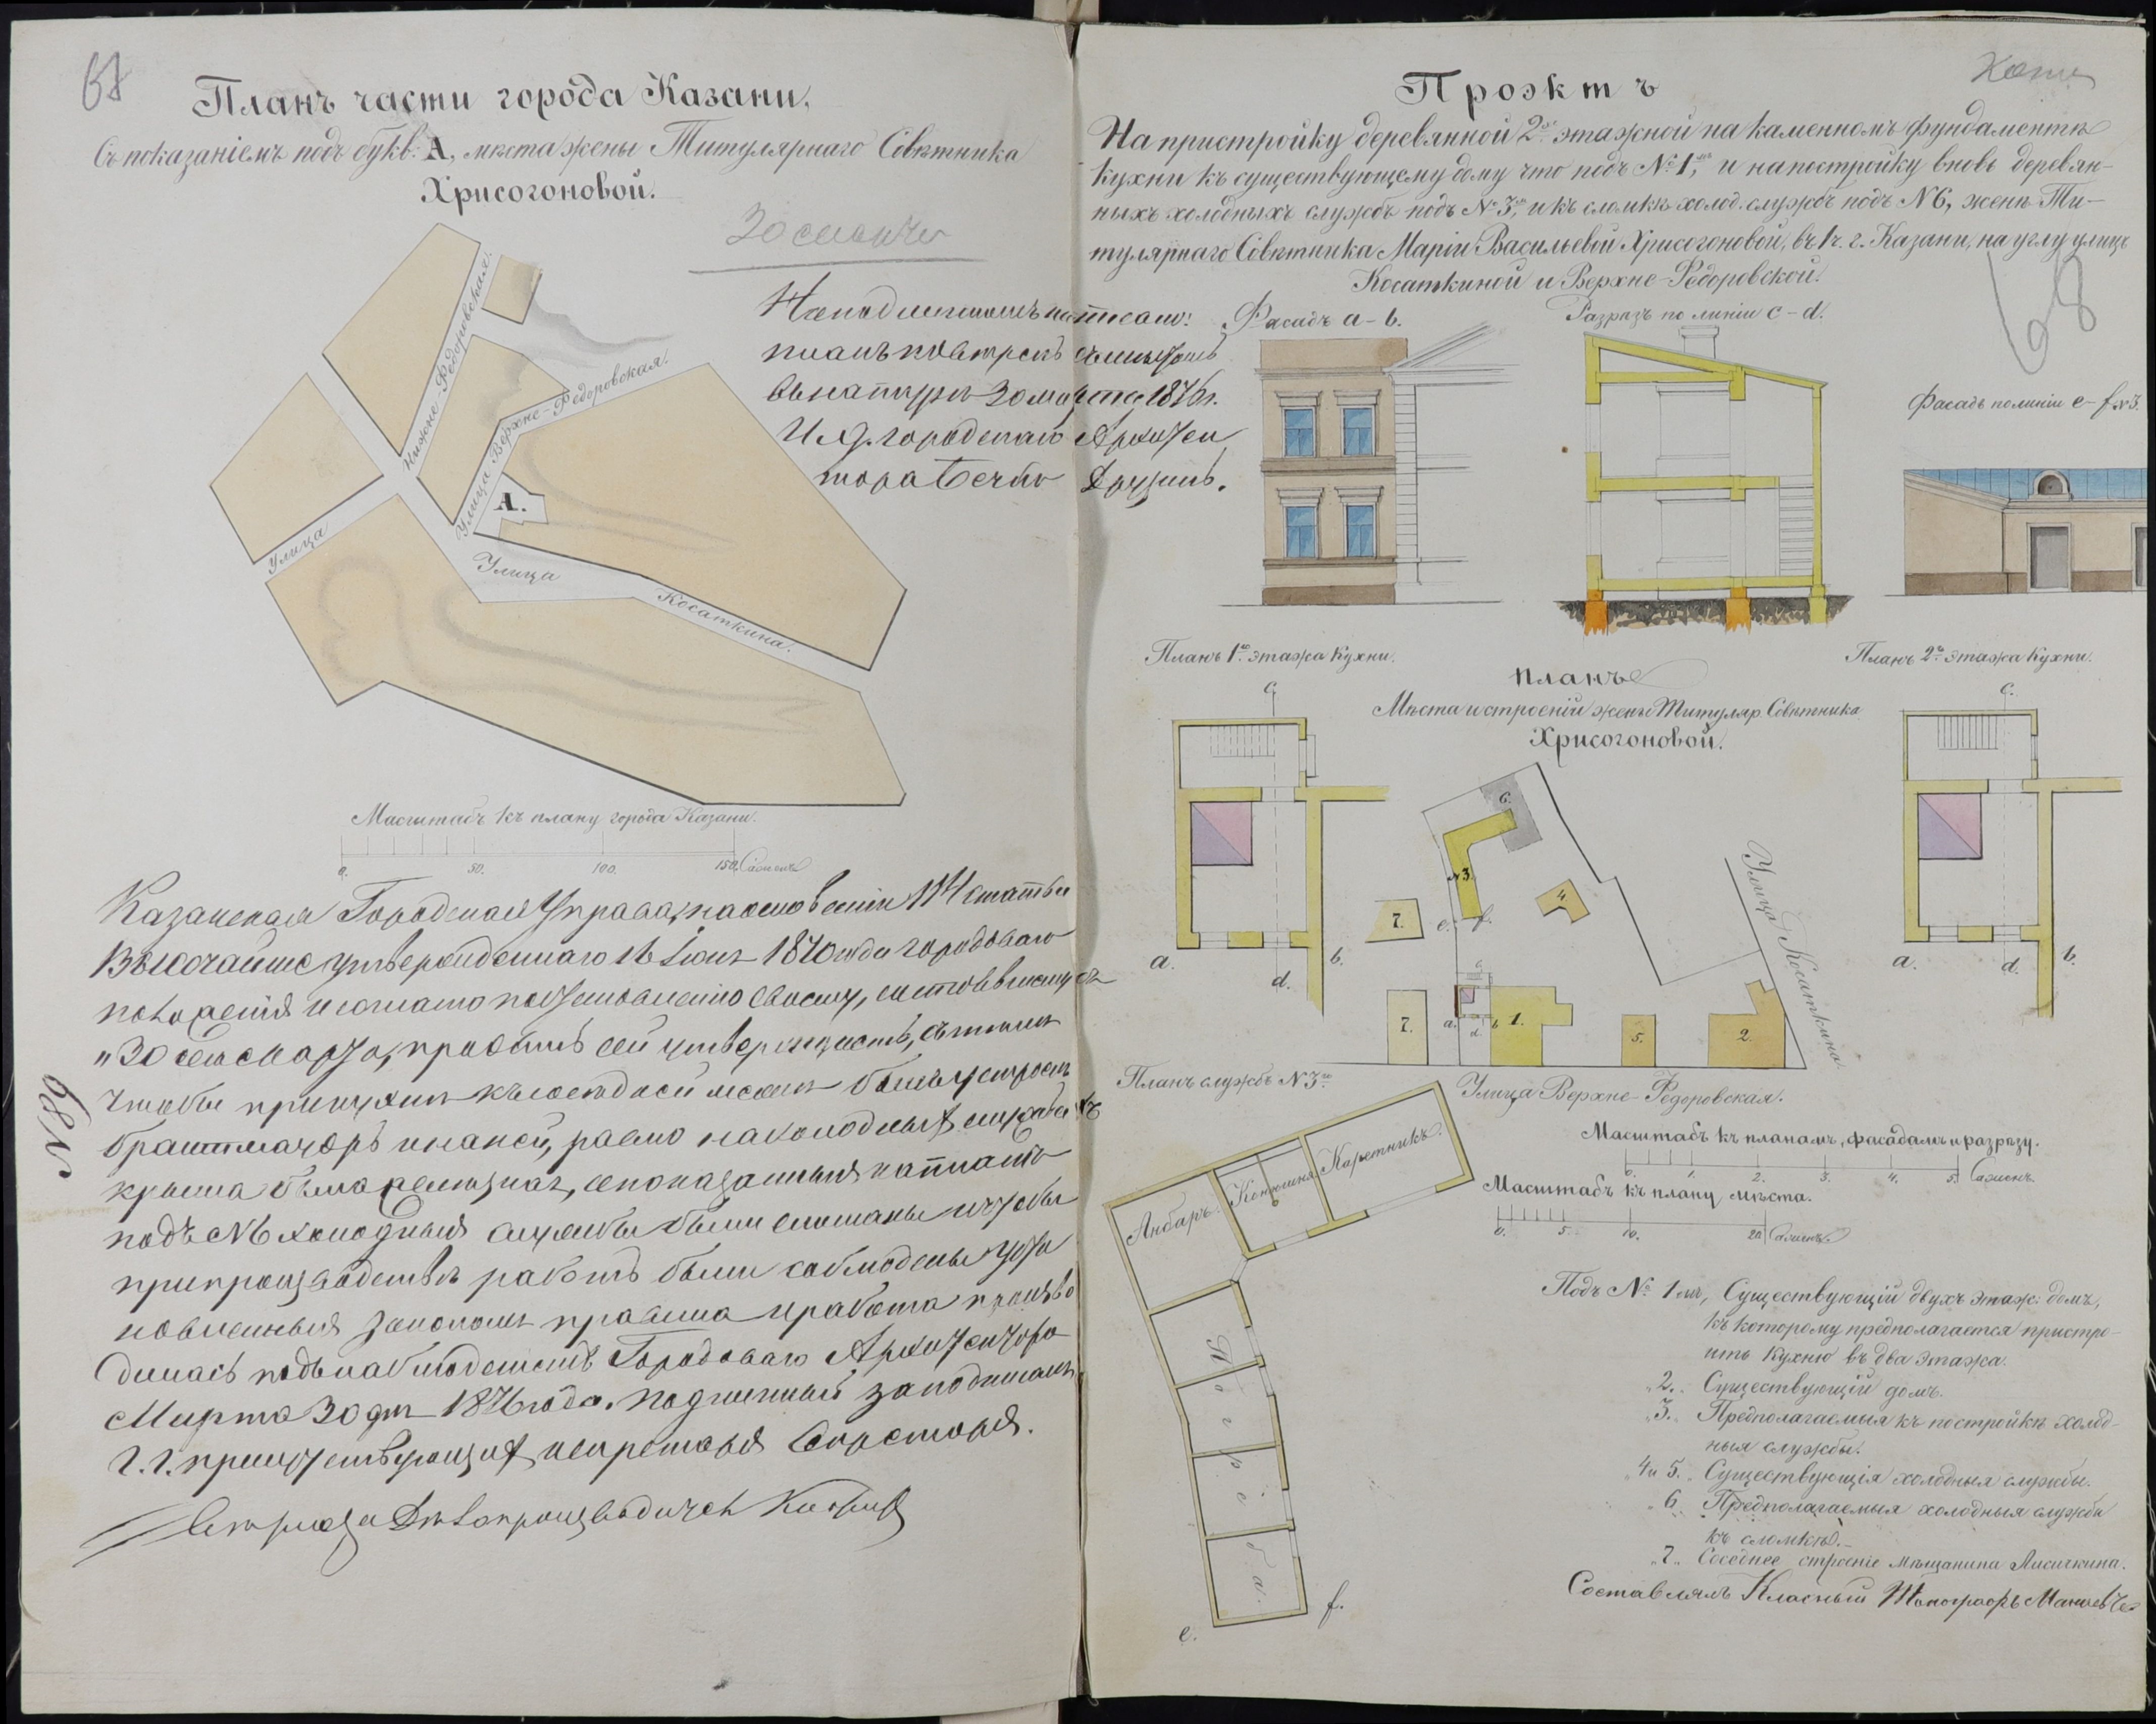 68
Планъ части города Казани,
Съ показаніемъ подъ букв. А, мѣста жены Титулярнаго Совѣтника
Хрисогоновой.
На подлинномъ написано:
планъ повѣренъ
въ натурѣ 30 марта 1876 г.
И. д. городскаго Архитек
тора
Нижне-Ѳедоровская.
Улица Верхне-Ѳедоровская.
А.
Улица
Улица
Косаткина.
Масштабъ къ плану города Казани.
0. 50. 100. 150. Сажень
Казанская Городская Управа, на основаніи 114 статьи
Высочайше утвержденнаго 16 Іюня 1870 года городоваго
положенія и согласно постановленію своему, состоявшемуся
„30 сего марта, проэктъ сей утверждаетъ, съ тѣмъ
чтобы при кухнѣ къ сосѣдней межѣ былъ устроенъ
брантмауэръ и на ней, равно на холодныхъ службахъ
крыша была желѣзная, а показанныя на планѣ
подъ №6 холодныя службы были сломаны и чтобы
при производствѣ работъ были соблюдены уста
новленныя закономъ правила и работа произво
дилась подъ наблюденіемъ Городоваго Архитектора
Марта 30 дня 1876 года. Подлинный за подписаніемъ
Г.г. присутствующихъ и секретаря
№ 68
Проэктъ
Копія
На пристройку деревянной 2хъ этажной на каменномъ фундаментѣ
кухни къ существующему дому что подъ № 1мъ, и на постройку вновь деревян-
ныхъ холодныхъ службъ подъ № 3мъ, и къ сломкѣ холод. службъ подъ № 6, жены Ти-
тулярнаго Совѣтника Маріи Васильевой Хрисогоновой, въ 1 ч. г. Казани, на углу улицъ
Косаткиной и Верхне-Ѳедоровской.
68
Фасадъ a-b.
Разрѣзъ по линіи c-d.
Фасадъ по линіи e-f № 3.
Планъ 1го этажа Кухни.
Планъ 2го этажа Кухни.
Планъ
Мѣста и строеній жены Титуляр. Совѣтника
Хрисогоновой.
c.
a.
d.
b.
c.
a.
d.
b.
6.
№ 3.
4.
7.
e.
f.
7.
c.
a.
d.
b
1.
5.
2.
Улица Косаткина
Улица Верхне-Ѳедоровская.
Планъ службъ № 3го
Анбаръ.
Конюшня
Каретникъ.
Погреба.
e.
f.
Масштабъ къ планамъ, фасадамъ и разрѣзу.
0. 1. 2. 3. 4. 5. Сажень.
Масштабъ къ плану мѣста.
0. 5. 10. 20. Сажень.
Подъ № 1мъ, Существующій двухъ этаж. домъ,
къ которому предполагается пристро-
ить Кухню въ два этажа.
„2. Существующій домъ.
„3. Предполагаемыя къ постройкѣ холод-
ныя службы.
„4 и 5. Существующія холодныя службы.
„6. Предполагаемыя холодныя службы
къ сломкѣ.
„7. Сосѣднее строеніе мѣщанина Лисичкина.
Составлялъ Класный Топографъ